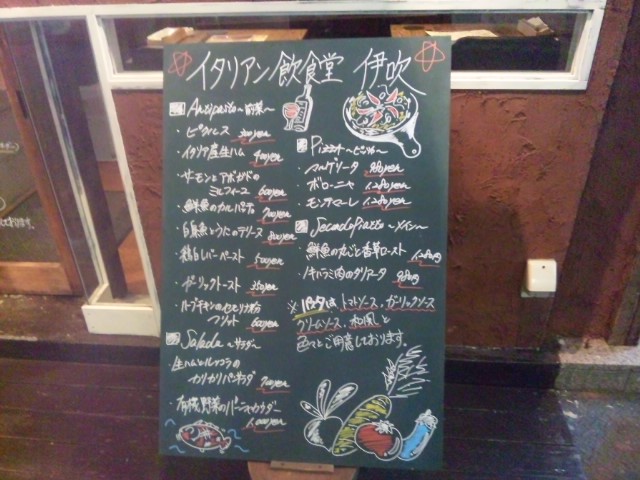 イタリアン飲食堂 伊吹
Antipasto〜前菜〜
・ピクルス 300yen
・イタリア産生ハム 900yen
・サーモンとアボカドの
ミルフィーユ 600yen
・鮮魚のカルパッチョ 700yen
・白身魚とうにのテリーヌ 800yen
・鶏白レバーペースト 500yen
・ガーリックトースト 350yen
・ハーブチキンのセモリナ粉
フリット 600yen
Salada 〜サラダ〜
生ハムとルッコラの
カリカリパンサラダ 700yen
有機野菜のバーニャカウダー
1,000yen
Pizza〜ピッツァ〜
・マルゲリータ 980yen
・ボローニャ 1,280yen
・モンテマーレ 1,280yen
Secondo Piatto 〜メイン〜
・鮮魚の丸ごと香草ロースト
・ハラミ肉のタリアータ 980yen
※パスタは、トマトソース、ガーリックソース
クリームソース、和風と
色々とご用意しております。